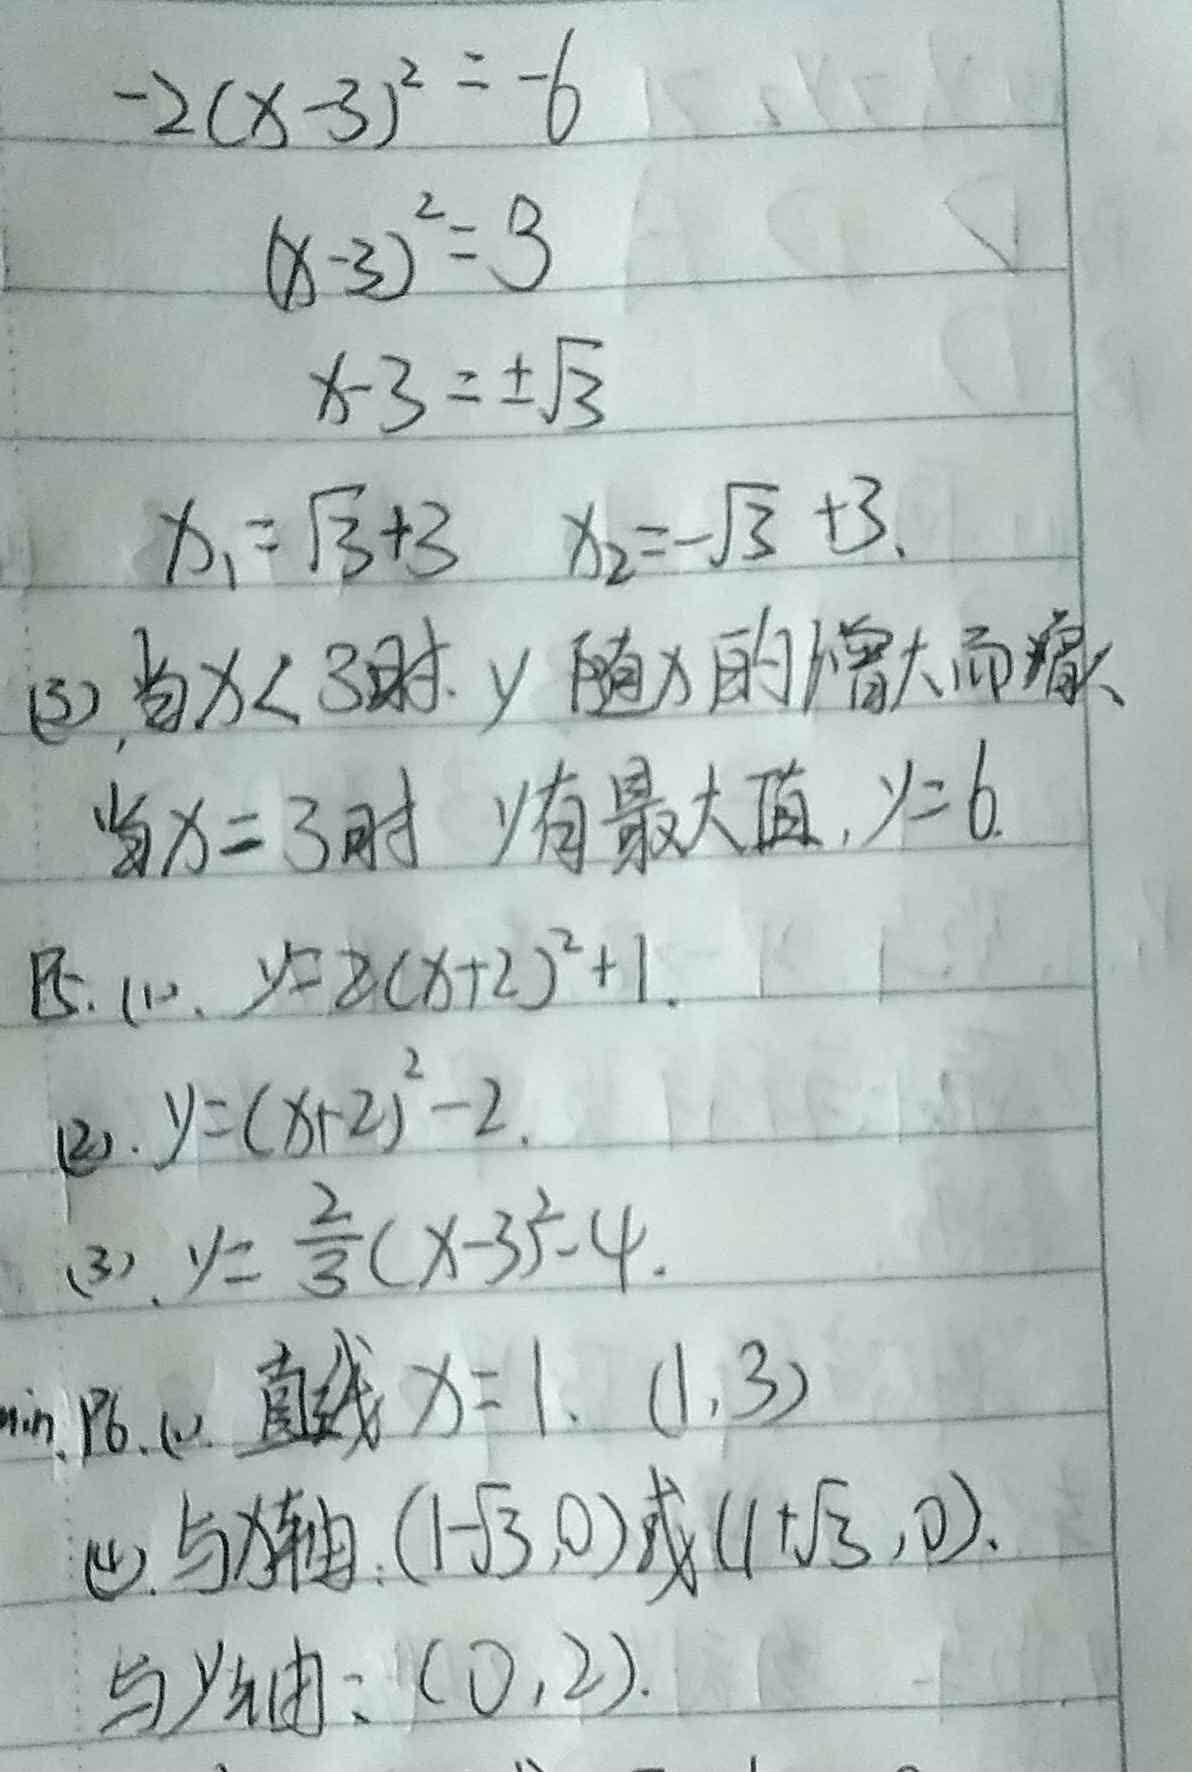 -2(x-3)²=-6
(x-3)²=3
x-3=±√3
x₁=√3+3 x₂=-√3+3.
(3).当x<3时.y随x的增大而增大
当x=3时 y有最大值,y=6.
P5.(1). y=2(x+2)²+1.
(2).y=(x+2)²-2.
(3).y=2/3(x-3)²-4.
min.P6.(1).直线x=1.(1,3)
(4).与x轴:(1-√3,0)或(1+√3,0).
与y轴:(0,2).